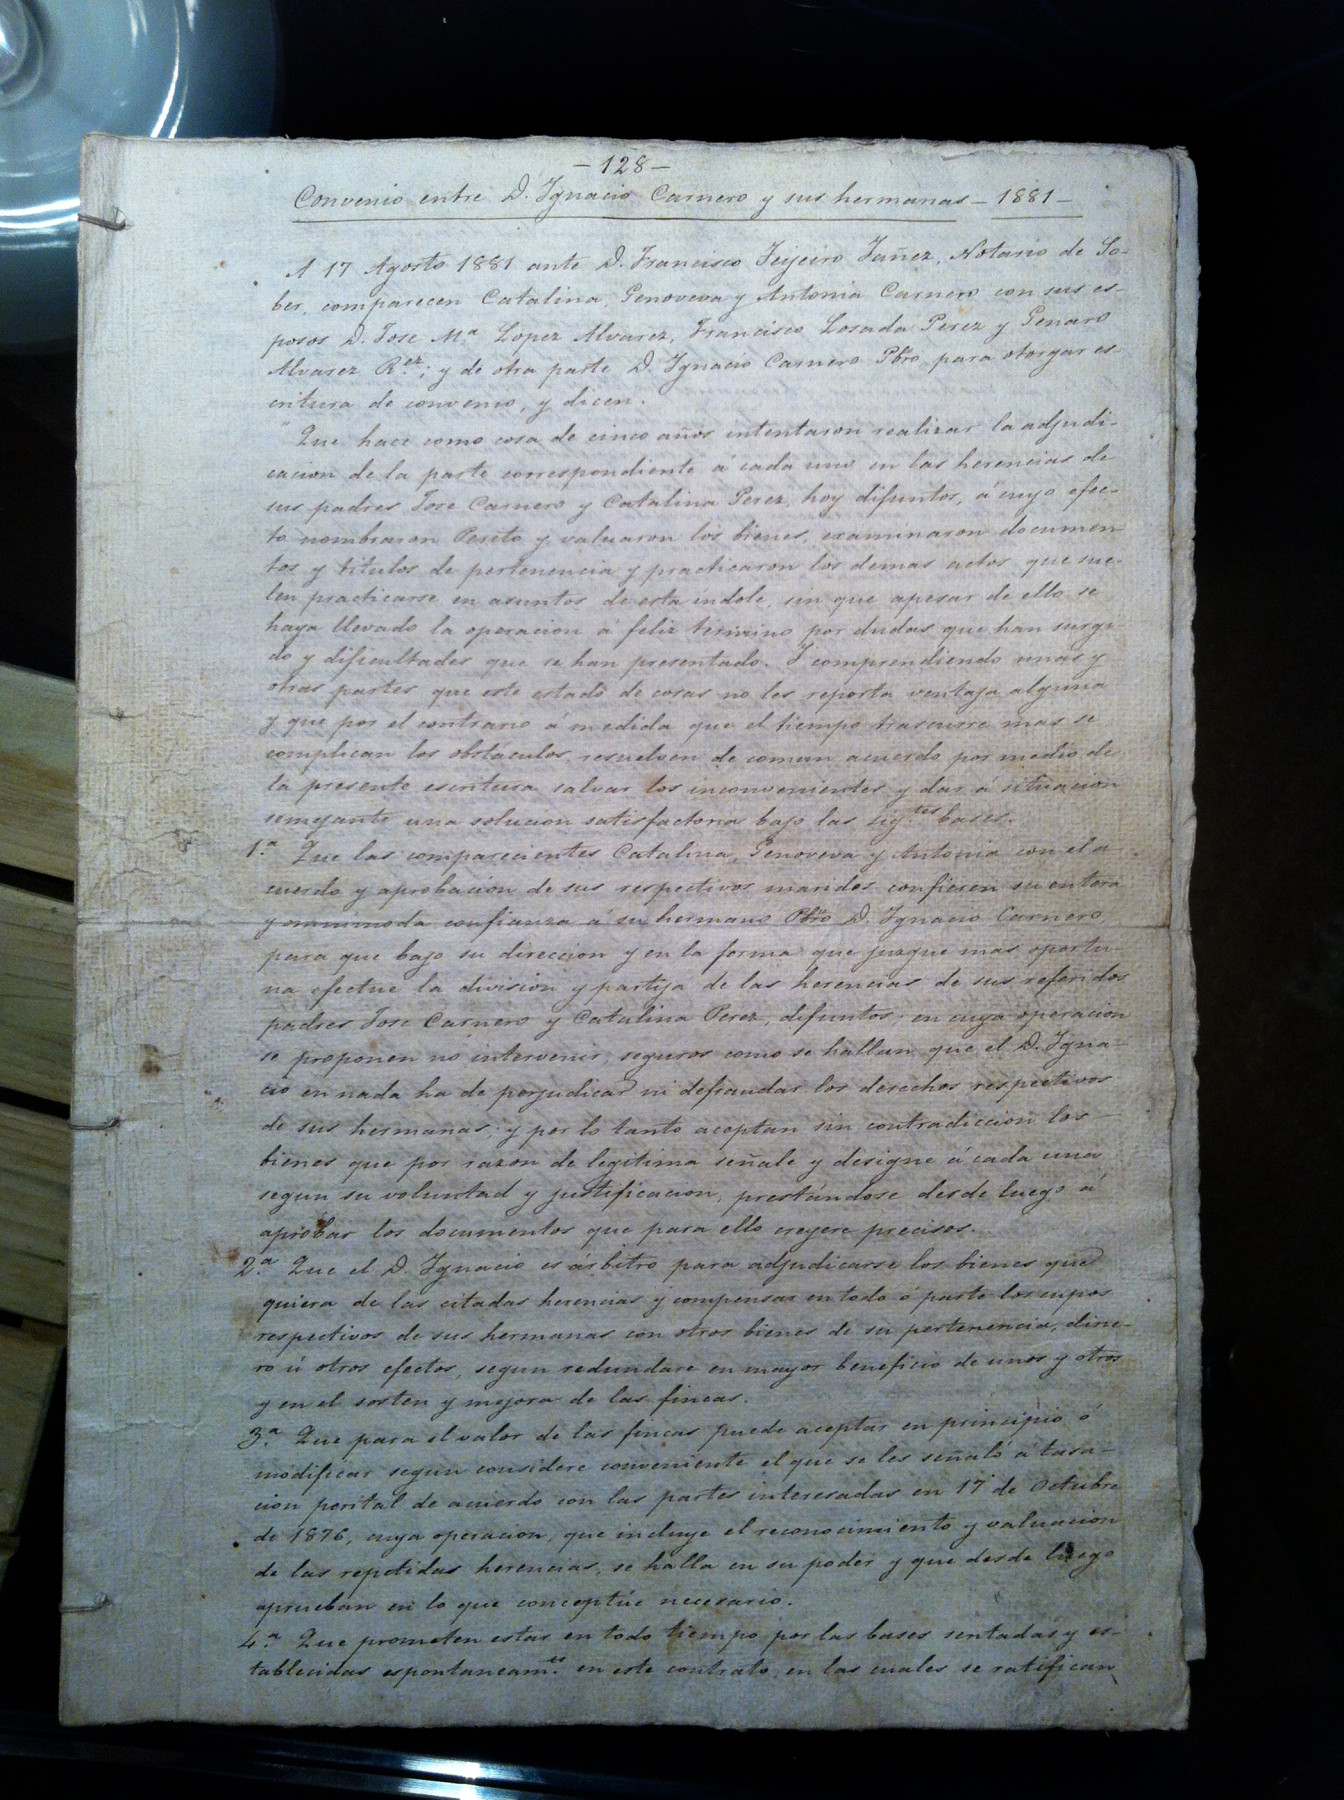 – 128 –
Convenio entre D. Ygnacio Carnero y sus hermanas – 1881 –
A 17 Agosto 1881 ante D. Francisco Teijeiro Yañez, Notario de So-
ber, comparecen Catalina, Genoveva y Antonia Carnero con sus es-
posos D. Jose Mª Lopez Alvarez, Francisco Losada Perez y Genaro
Alvarez R.ez; y de otra parte D. Ygnacio Carnero Pbro para otorgar es-
critura de convenio, y dicen.
" Que hace como cosa de cinco años intentaron realizar la adjudi-
cacion de la parte correspondiente á cada uno en las herencias de
sus padres Jose Carnero y Catalina Perez, hoy difuntos, á cuyo efec-
to nombraron Perito y valuaron los bienes, examinaron documen-
tos y titulos de pertenencia y practicaron los demas actos que sue-
len practicarse en asuntos de esta indole, sin que apesar de ello se
haya llevado la operacion á feliz termino por dudas que han surgi-
do y dificultades que se han presentado. Y comprendiendo unas y
otras partes que este estado de cosas no les reporta ventaja alguna
y que por el contrario á medida que el tiempo trascurre mas se
complican los obstaculos, resuelven de comun acuerdo por medio de
la presente escritura salvar los inconvenientes y dar á situacion
semejante una solucion satisfactoria bajo las sig.tes bases.
1.ª Que las comparecientes Catalina, Genoveva y Antonia con el a
cuerdo y aprobacion de sus respectivos maridos confieren su entera
y omnimoda confianza á su hermano Pbro D. Ygnacio Carnero,
para que bajo su direccion y en la forma que juzgue mas oportu-
na efectue la division y partija de las herencias de sus referidos
padres Jose Carnero y Catalina Perez, difuntos; en cuya operacion
se proponen no intervenir, seguros como se hallan que el D. Ygna-
cio en nada ha de perjudicar ni defraudar los derechos respectivos
de sus hermanas; y por lo tanto aceptan sin contradiccion los
bienes que por razon de legitima señale y designe á cada una
segun su voluntad y justificacion, prestándose desde luego á
aprobar los documentos que para ello creyere precisos.
2.ª Que el D. Ygnacio es árbitro para adjudicarse los bienes que
quiera de las citadas herencias y compensar en todo ó parte los cupos
respectivos de sus hermanas con otros bienes de su pertenencia, dine-
ro ú otros efectos, segun redundare en mayor beneficio de unos y otros
y en el sosten y mejora de las fincas.
3.ª Que para el valor de las fincas puede aceptar en principio ó
modificar segun considere conveniente el que se les señaló á tasa-
cion perital de acuerdo con las partes interesadas en 17 de Octubre
de 1876, cuya operacion, que incluye el reconocimiento y valuacion
de las repetidas herencias, se halla en su poder y que desde luego
aprueban en lo que conceptúe necesario.
4.ª Que prometen estar en todo tiempo por las bases sentadas y es-
tablecidas espontaneam.te en este contrato, en las cuales se ratifican